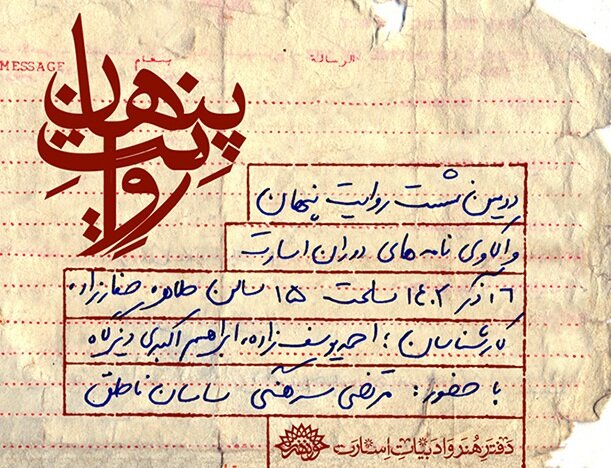 MESSAGE پیغام الرسالة
روایت پنهان
دومین نشست روایت پنهان
واکاوی نامه های دوران اسارت
۱۶ آذر ۱۴۰۲ ساعت ۱۵ سالن طاهره صفارزاده
کارشناسان: احمد یوسف زاده، ابراهیم اکبری دیزگاه
با حضور: مرتضی سرهنگی ساسان ناطق
دفتر هنر و ادبیات اسارت